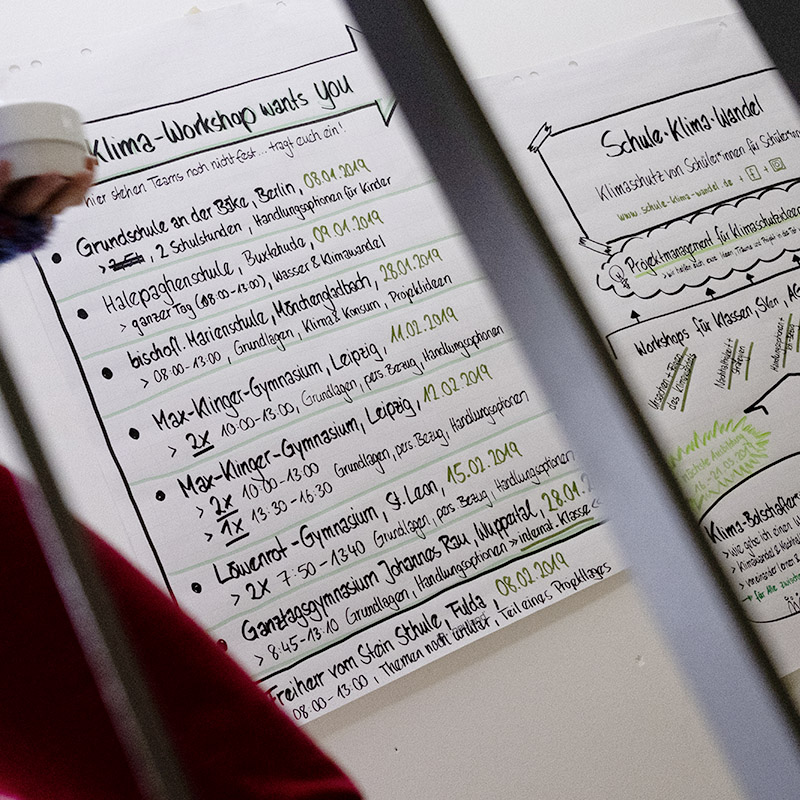 Klima-Workshop wants you
hier stehen Teams noch nicht fest... tragt euch ein!
Grundschule an der Bäke, Berlin, 08.01.2019
> 2 Schulstunden, Handlungsoptionen für Kinder
Halepaghenschule, Buxtehude, 09.01.2019
> ganzer Tag (08:00-13:00), Wasser & Klimawandel
bischöfl. Marienschule, Mönchengladbach, 28.01.2019
> 08:00-13:00, Grundlagen, Klima & Konsum, Projektideen
Max-Klinger-Gymnasium, Leipzig, 11.02.2019
> 2x 10:00-13:00, Grundlagen, pers. Bezug, Handlungsoptionen
Max-Klinger-Gymnasium, Leipzig, 12.02.2019
> 2x 10:00-13:00
> 1x 13:30-16:30 Grundlagen, pers. Bezug, Handlungsoptionen
Löwenrot-Gymnasium, St. Leon, 15.02.2019
> 2x 7:50-13:40 Grundlagen, pers. Bezug, Handlungsoptionen
Ganztagsgymnasium Johannes Rau, Wuppertal, 28.01.2
> 8:45-13:10 Grundlagen, Handlungsoptionen >> internat. Klasse <<
Freiherr vom Stein Schule, Fulda, 08.02.2019
08:00-13:00, Themen noch unklar, Teil eines Projekttages
Schule·Klima·Wandel
Klimaschutz von Schüler*innen für Schüler*inn
www.schule-klima-wandel.de + f +
Projektmanagement für Klimaschutzideen
Workshops für Klassen, SVen, AG
Ursachen + Folgen
des Klimawandels
Nachhaltigkeit +
Strategien
Handlungsoptionen +
nächste Ausbildung
Klima-Botschafter
> Wie gebe ich einen W
> Klimawandel & Nachhal
> voneinander lernen &
→ für Alle zwische